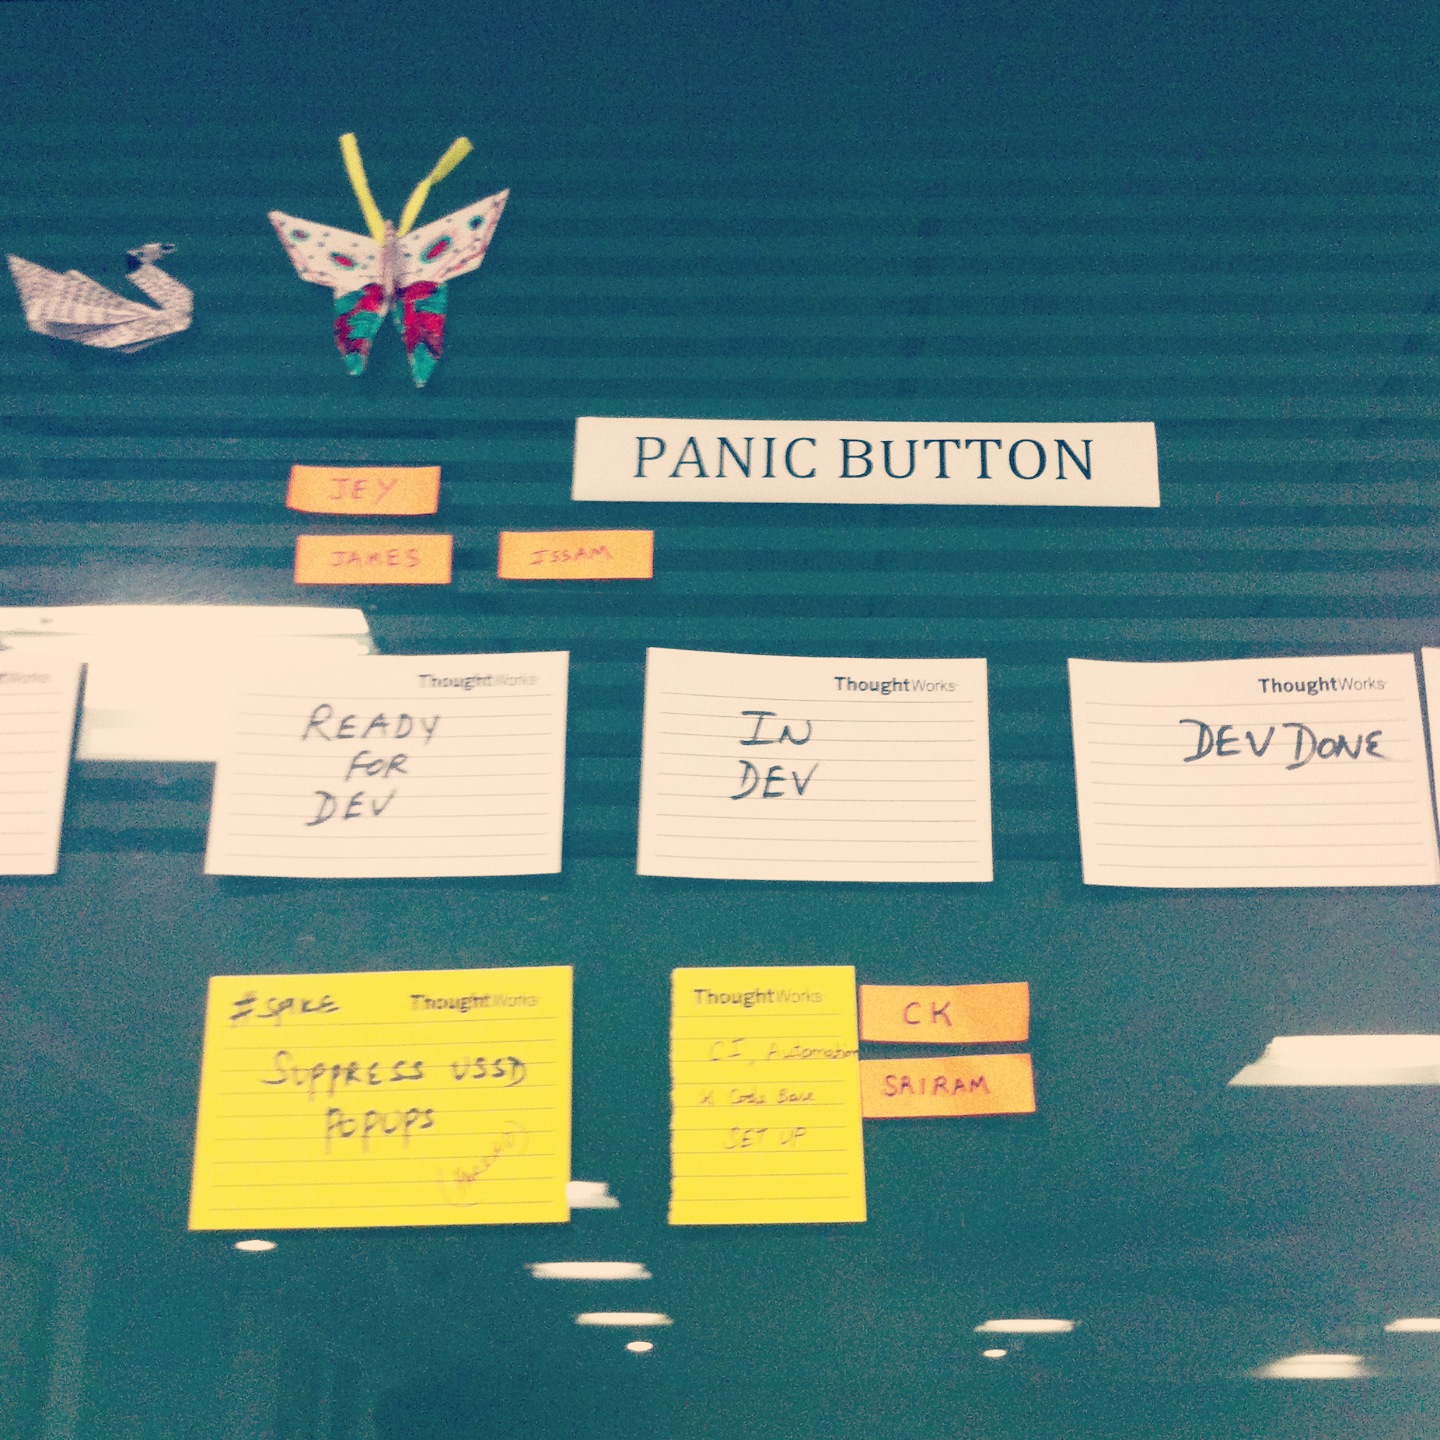 PANIC BUTTON
JEY
JAMES
ISSAM
ThoughtWorks
READY
FOR
DEV
ThoughtWorks
IN
DEV
ThoughtWorks
DEV DONE
#SPIKE
ThoughtWorks
SUPPRESS USSD
POPUPS
ThoughtWorks
CI, Automation
& Code Base
SET UP
CK
SAIRAM